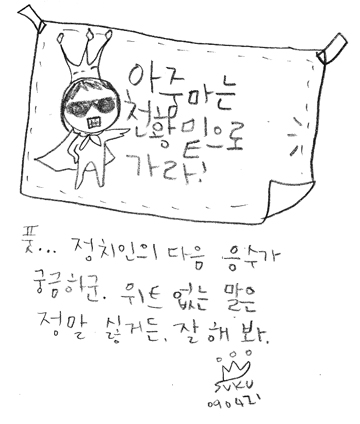 아줌마는
천왕 밑으로
가라!
풋... 정치인의 다음 응수가
궁금하군. 위트 없는 말은
정말 싫거든. 잘 해 봐.
SUKU
090421